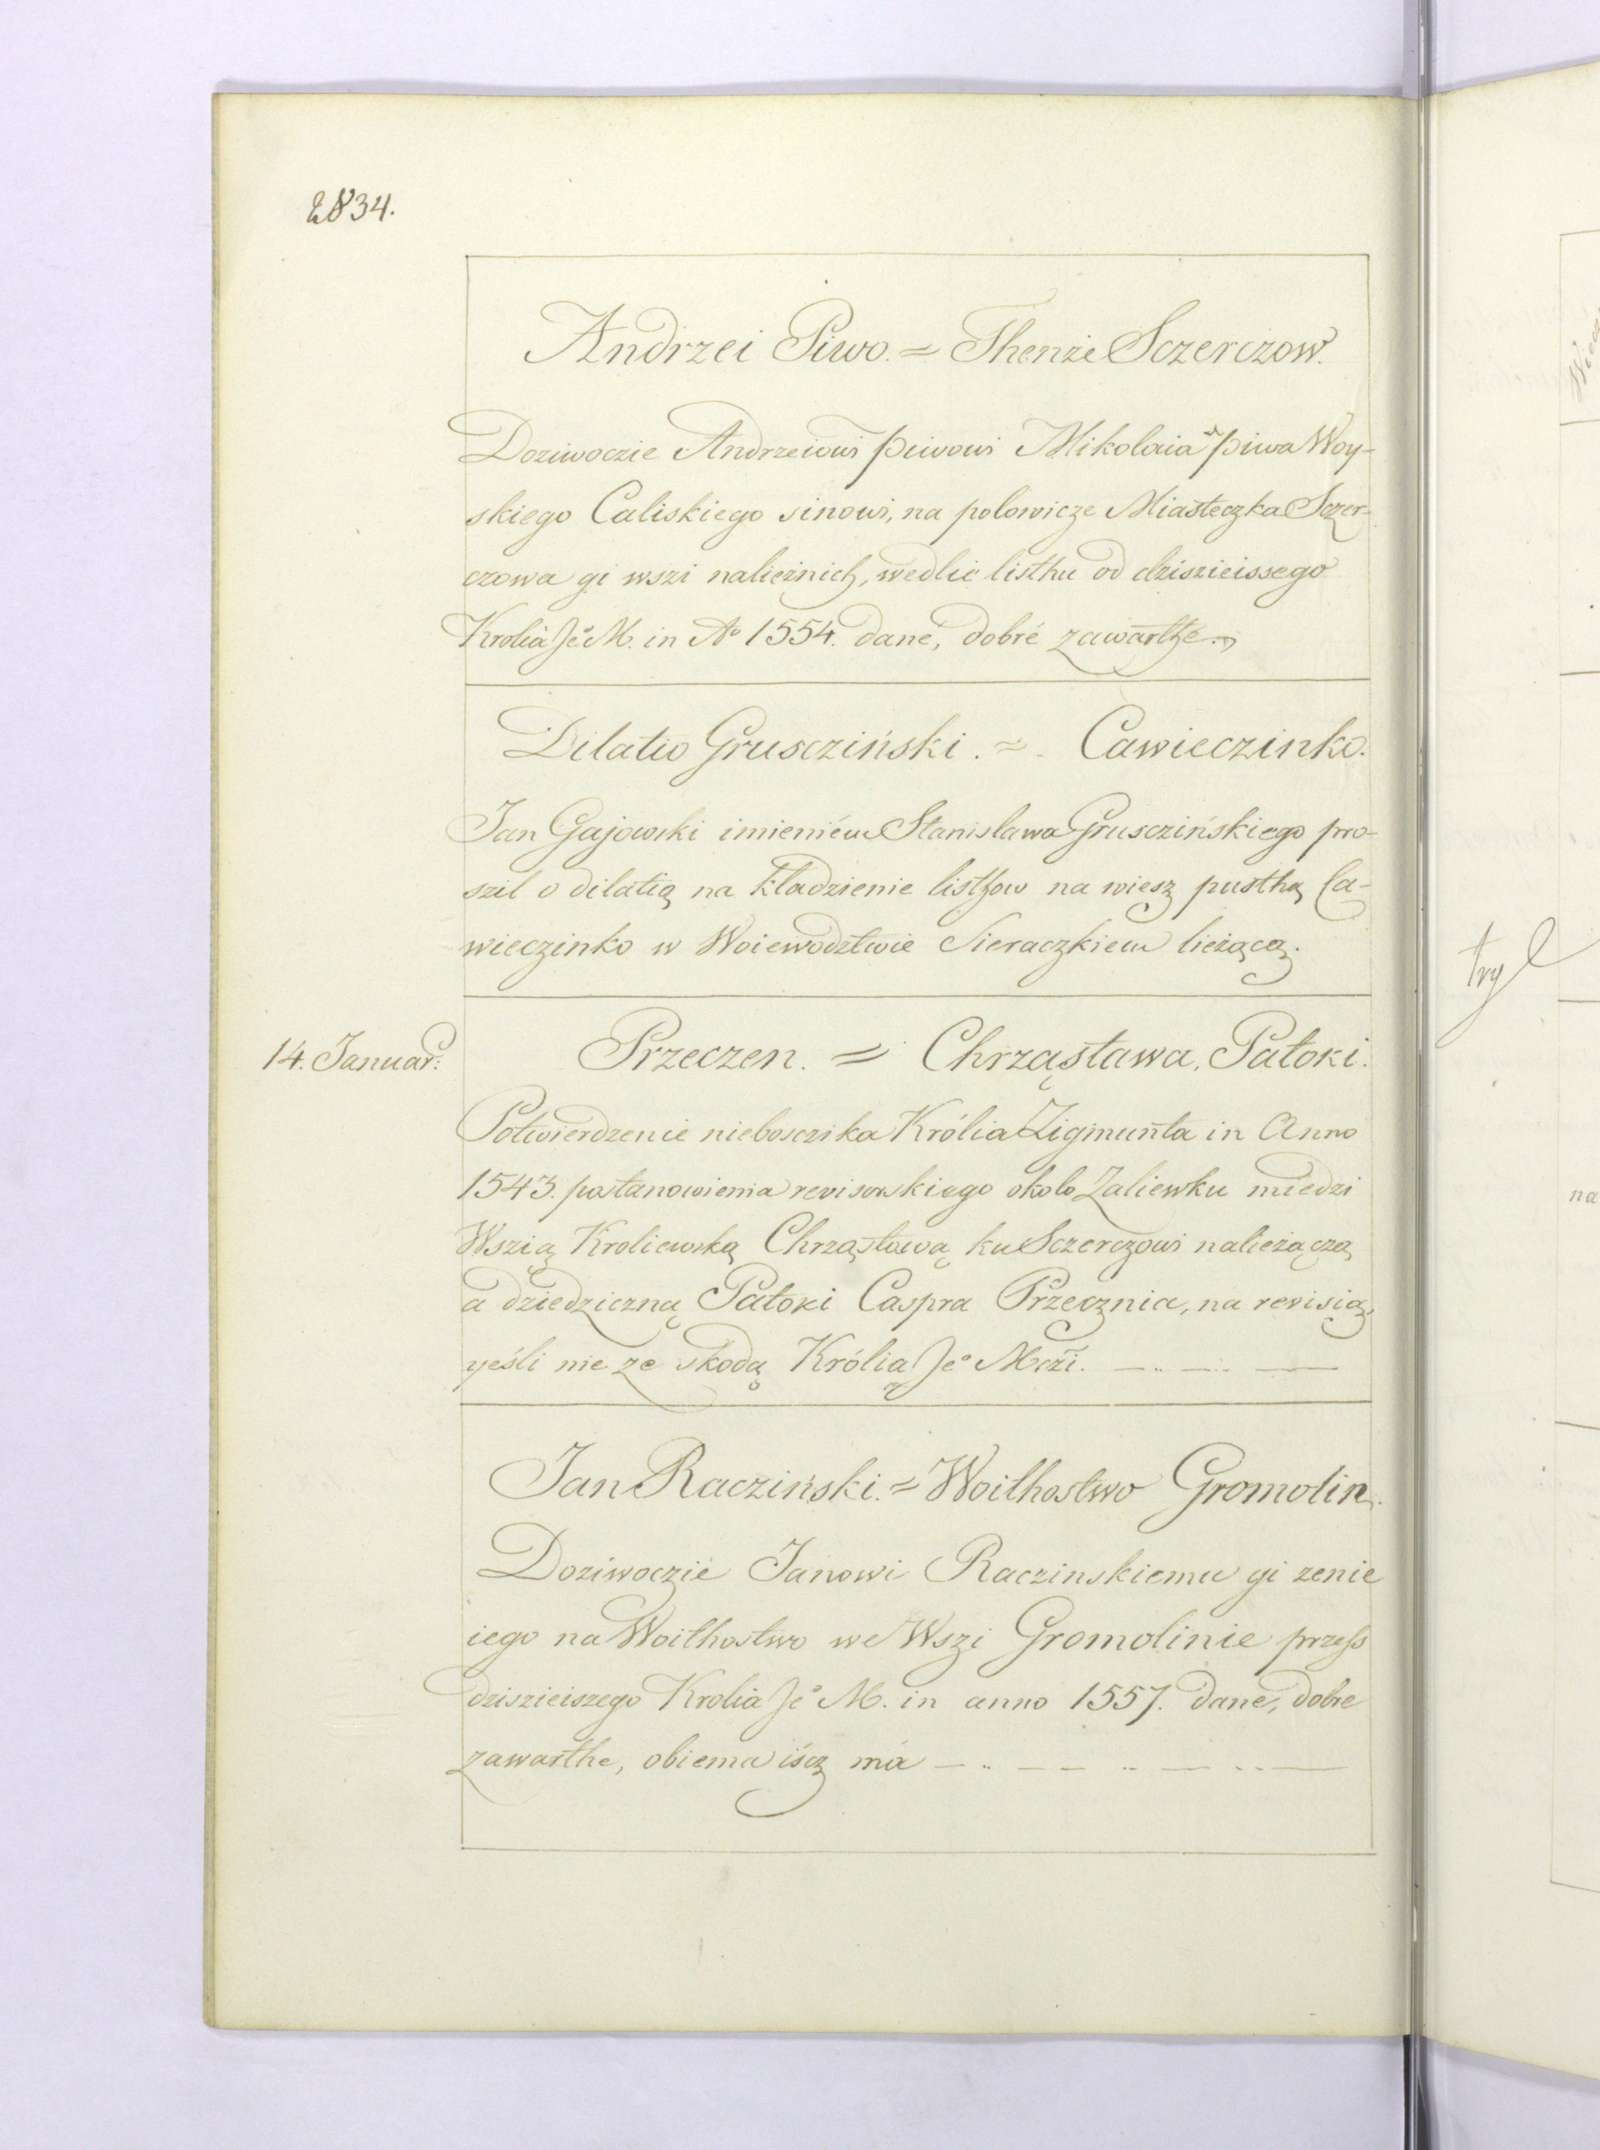 2834.
Andrzei Piwo. = Thenże Sczerczow.
Doziwoczie Andrzeiowi piwowi Mikolaia piwa Woy-
skiego Caliskiego sinowi, na polowicze Miasteczka Sczer-
czowa gi wszi nalieżnich, wedlie listhu od dziszieissego
Krolia Je° M. in A° 1554. dane, dobré zawarthe.
Dilatio Gruscziński. = Cawieczinko.
Jan Gajowski imieniém Stanislawa Grusczińskiego pro-
szil o dilatią na kładzienie listhow na wiesz pusthą Ca-
wieczinko w Woiewodztwie Sieraczkiem lieżącą.
14. Januar:
Przeczen. = Chrząstawa, Patoki.
Potwierdzenie nieboszczika Królia Zigmunta in Anno
1543. postanowienia revisorskiego okolo Zaliewku miedzi
Wszią Kroliewską Chrząstawą ku Sczerczowi nalieżączą
a dziedziczną Patoki Caspra Przecznia, na revisią,
yeśli nie ze skodą Królią Je° Mczi.
Jan Racziński. = Woithostwo Gromolin.
Doziwoczié Janowi Raczinskiemu gi zenie
iego na Woithostwo we Wszi Gromolinie przess
dziszieiszego Krolia Je° M. in anno 1557. dane, dobre
zawarthe, obiema iścz má
tryl
na